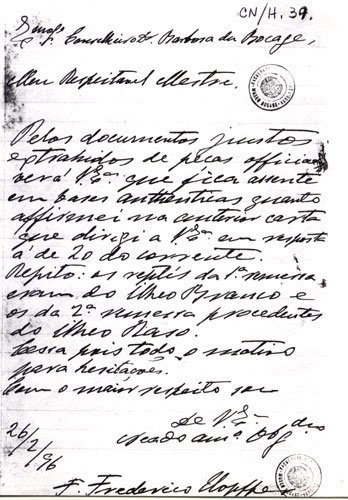 CN/H. 39.
Exmo Sr. Conselheiro Dr. Barbosa du Bocage,
Meu Respeitavel Mestre.
Pelos documentos juntos
extrahidos de peças officiaes
verá V. Exª que fica assente
em bases authenticas quanto
affirmei na anterior carta
que dirigi a V. Exª em resposta
á de 20 do corrente.
Repito: os reptis da 1ª remessa
eram do Ilheo Branco e
os da 2ª remessa procedentes
do Ilheo Raso.
Cessa pois todo o motivo
para hesitações.
Com o maior respeito sou
de V. Exª
26/2/96
F. Frederico Hopffer